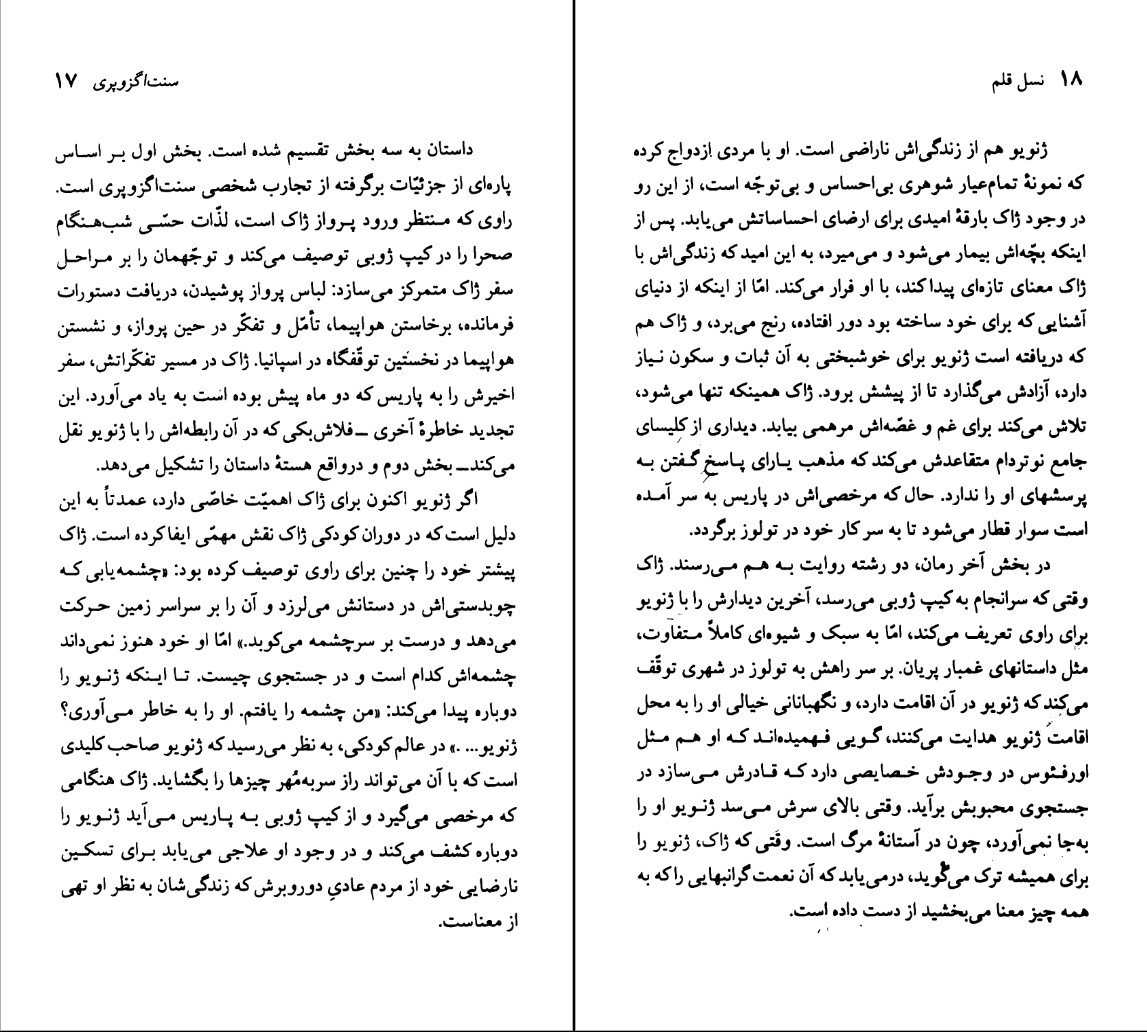 سنت‌اگزوپری ۱۷
داستان به سه بخش تقسیم شده است. بخش اول بر اساس
پاره‌ای از جزئیّات برگرفته از تجارب شخصی سنت‌اگزوپری است.
راوی که منتظر ورود پرواز ژاک است، لذّات حسّی شب‌هنگام
صحرا را در کیپ ژوبی توصیف می‌کند و توجّهمان را بر مراحل
سفر ژاک متمرکز می‌سازد: لباس پرواز پوشیدن، دریافت دستورات
فرمانده، برخاستن هواپیما، تأمّل و تفکّر در حین پرواز، و نشستن
هواپیما در نخستین توقّفگاه در اسپانیا. ژاک در مسیر تفکّراتش، سفر
اخیرش را به پاریس که دو ماه پیش بوده است به یاد می‌آورد. این
تجدید خاطرهٔ آخری ــ فلاش‌بکی که در آن رابطه‌اش را با ژنویو نقل
می‌کند ــ بخش دوم و درواقع هستهٔ داستان را تشکیل می‌دهد.
اگر ژنویو اکنون برای ژاک اهمیّت خاصّی دارد، عمدتاً به این
دلیل است که در دوران کودکی ژاک نقش مهمّی ایفا کرده است. ژاک
پیشتر خود را چنین برای راوی توصیف کرده بود: «چشمه‌یابی که
چوبدستی‌اش در دستانش می‌لرزد و آن را بر سراسر زمین حرکت
می‌دهد و درست بر سرچشمه می‌کوبد.» امّا او خود هنوز نمی‌داند
چشمه‌اش کدام است و در جستجوی چیست. تا اینکه ژنویو را
دوباره پیدا می‌کند: «من چشمه را یافتم. او را به خاطر می‌آوری؟
ژنویو... .» در عالم کودکی، به نظر می‌رسید که ژنویو صاحب کلیدی
است که با آن می‌تواند راز سربه‌مُهر چیزها را بگشاید. ژاک هنگامی
که مرخصی می‌گیرد و از کیپ ژوبی به پاریس می‌آید ژنویو را
دوباره کشف می‌کند و در وجود او علاجی می‌یابد برای تسکین
نارضایی خود از مردم عادیِ دوروبرش که زندگی‌شان به نظر او تهی
از معناست.
۱۸ نسل قلم
ژنویو هم از زندگی‌اش ناراضی است. او با مردی ازدواج کرده
که نمونهٔ تمام‌عیار شوهری بی‌احساس و بی‌توجّه است، از این رو
در وجود ژاک بارقهٔ امیدی برای ارضای احساساتش می‌یابد. پس از
اینکه بچّه‌اش بیمار می‌شود و می‌میرد، به این امید که زندگی‌اش با
ژاک معنای تازه‌ای پیدا کند، با او فرار می‌کند. امّا از اینکه از دنیای
آشنایی که برای خود ساخته بود دور افتاده، رنج می‌برد، و ژاک هم
که دریافته است ژنویو برای خوشبختی به آن ثبات و سکون نیاز
دارد، آزادش می‌گذارد تا از پیشش برود. ژاک همینکه تنها می‌شود،
تلاش می‌کند برای غم و غصّه‌اش مرهمی بیابد. دیداری از کلیسای
جامع نوتردام متقاعدش می‌کند که مذهب یارای پاسخ گفتن به
پرسشهای او را ندارد. حال که مرخصی‌اش در پاریس به سر آمده
است سوار قطار می‌شود تا به سر کار خود در تولوز برگردد.
در بخش آخر رمان، دو رشته روایت به هم می‌رسند. ژاک
وقتی که سرانجام به کیپ ژوبی می‌رسد، آخرین دیدارش را با ژنویو
برای راوی تعریف می‌کند، امّا به سبک و شیوه‌ای کاملاً متفاوت،
مثل داستانهای غمبار پریان. بر سر راهش به تولوز در شهری توقّف
می‌کند که ژنویو در آن اقامت دارد، و نگهبانانی خیالی او را به محل
اقامت ژنویو هدایت می‌کنند، گویی فهمیده‌اند که او هم مثل
اورفئوس در وجودش خصایصی دارد که قادرش می‌سازد در
جستجوی محبوبش برآید. وقتی بالای سرش می‌رسد ژنویو او را
به‌جا نمی‌آورد، چون در آستانهٔ مرگ است. وقتی که ژاک، ژنویو را
برای همیشه ترک می‌گوید، درمی‌یابد که آن نعمت گرانبهایی را که به
همه چیز معنا می‌بخشید از دست داده است.